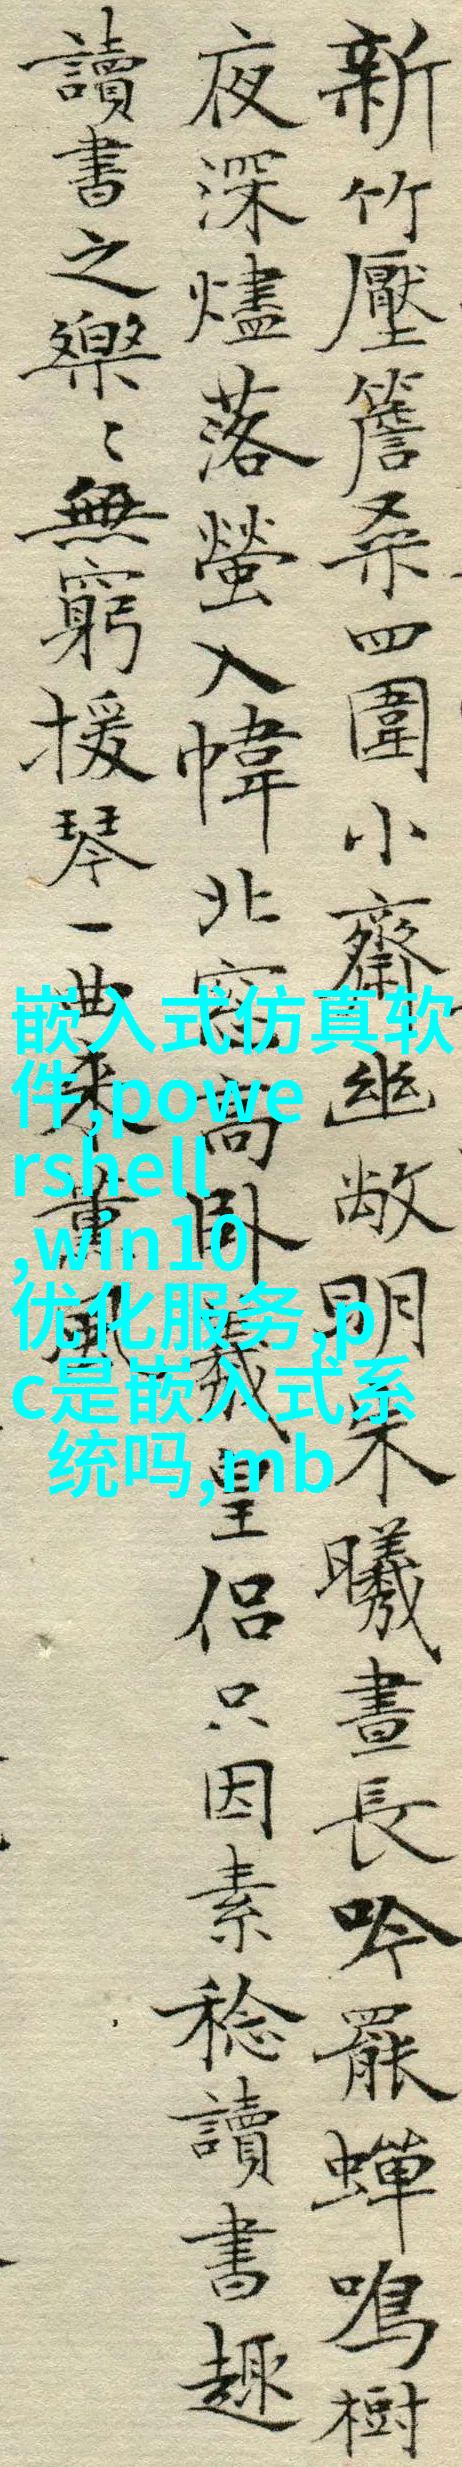 新竹壓簷桑四圍小齋幽敞明朱曦晝長吟罷蟬鳴樹
夜深燼落螢入幃北窓高卧羲皇侶只因素稔讀書趣
讀書之樂〻無窮援琴一曲來薰風
嵌入式仿真软
件,powe
rshell
,win10
优化服务,p
c是嵌入式系
统吗,mb